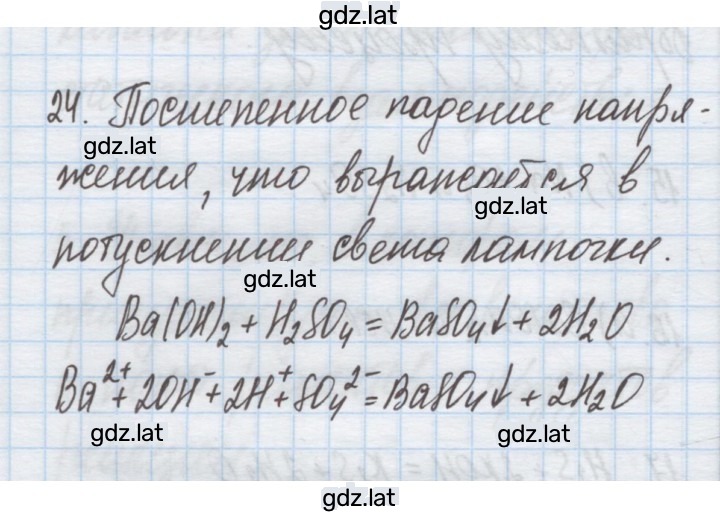 gdz.lat
24. Постепенное падение напря-
gdz.lat
жения, что выражается в
gdz.lat
потускнении света лампочки.
gdz.lat
Ba(OH)₂ + H₂SO₄ = BaSO₄↓ + 2H₂O
Ba²⁺ + 2OH⁻ + 2H⁺ + SO₄²⁻ = BaSO₄↓ + 2H₂O
gdz.lat gdz.lat
gdz.lat